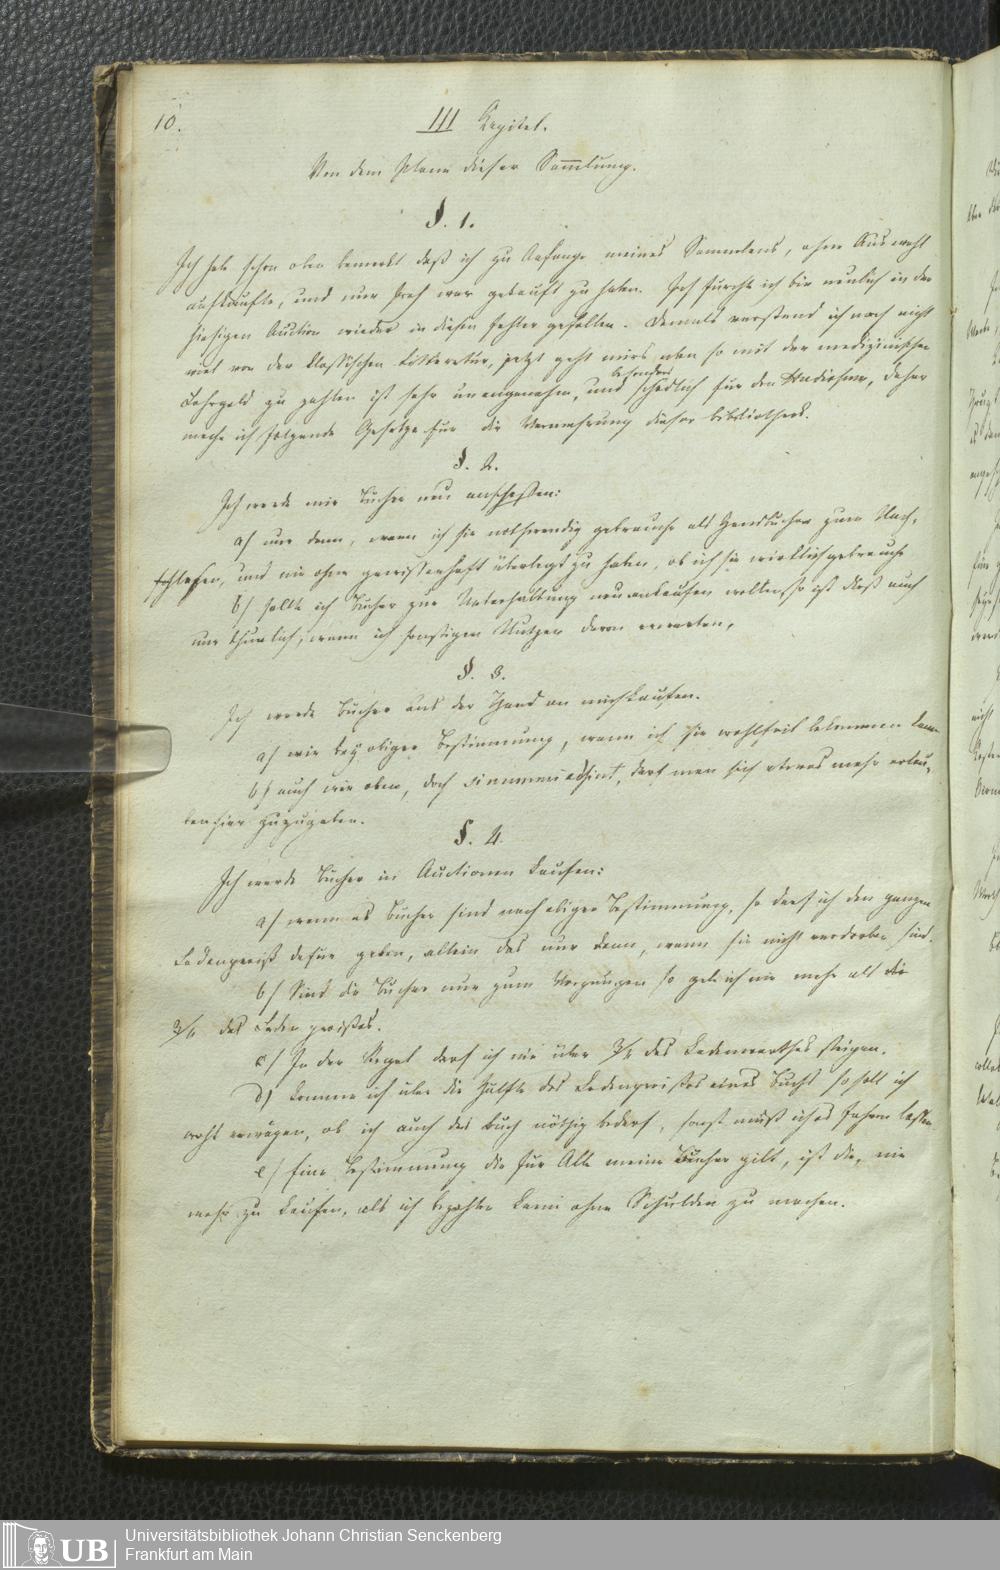 10.
III Capitel.
Von dem Plane dieser Sammlung.
§. 1.
Ich habe schon oben bemerkt daß ich zu Anfange meines Sammelns, ohne Auswahl
aufkaufte, und nur froh war gekauft zu haben. Ich fürchte ich bin neulich in der
hiesigen Auction wieder in diesen Fehler gefallen. Damals verstand ich noch nicht
viel von der klassischen Litteratur, jetzt geht mirs eben so mit der medizinischen
besonders
Lehrgeld zu zahlen ist sehr unangenehm, und schädlich für den Studirenden, daher
mache ich folgende Gesetze für die Vermehrung dieser Bibliothek.
§. 2.
Ich werde mir Bücher neu anschaffen:
a) nur dann, wenn ich sie nothwendig gebrauche als Handbücher zum Nach-
schlagen, und nie ohne gewissenhaft überlegt zu haben, ob ich sie wirklich gebrauche
b) sollte ich Bücher zur Unterhaltung neu ankaufen wollen, so ist dieß auch
nur thunlich, wenn ich sonstigen Nutzen davon erwarten,
§. 3.
Ich werde Bücher aus der Hand an mich kaufen.
a) wie bey obiger Bestimmung, wenn ich sie wohlfeil bekommen kann
b) auch wie oben, doch si nummi adsint, darf man sich etwas mehr erlau-
ben hier zuzugeben.
§. 4.
Ich werde Bücher in Auctionen kaufen:
a) wenn es Bücher sind nach obiger Bestimmung, so darf ich den ganzen
Ladenpreiß dafür geben, allein das nur dann, wenn sie nicht verdorben sind.
b) Sind die Bücher nur zum Vergnügen so gebe ich nie mehr als die
3/4 des Laden preißes.
c) In der Regel darf ich nie über 3/4 des Ladenwerthes steigen.
d) Komme ich über die Hälfte des Ladenpreißes eines Buchs so soll ich
wohl erwägen, ob ich auch das Buch nöthig bedarf, sonst muß ich es fahren lassen
e) Eine Bestimmung die für Alle meine Bücher gilt, ist die, nie
mehr zu kaufen, als ich bezahlen kann ohne Schulden zu machen.
UB
Universitätsbibliothek Johann Christian Senckenberg
Frankfurt am Main